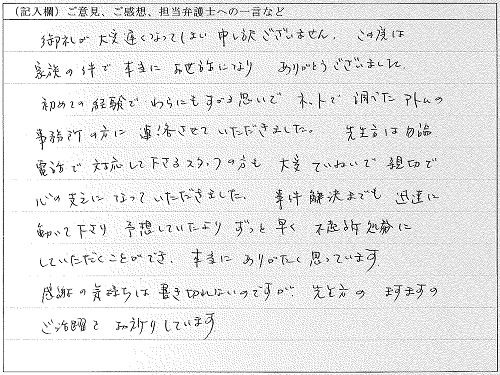 （記入欄）ご意見、ご感想、担当弁護士への一言など
御礼が大変遅くなってしまい申し訳ございません。この度は
家族の件で本当にお世話になり ありがとうございました。
初めての経験で わらにもすがる思いで ネットで調べたアトムの
事務所の方に連絡させていただきました。 先生方は勿論
電話で対応して下さるスタッフの方も 大変ていねいで親切で
心の支えになっていただきました。 事件解決までも迅速に
動いて下さり 予想していたより ずっと早く 不起訴処分に
していただくことができ、本当にありがたく思っています
感謝の気持ちは書き切れないのですが、先生方の ますますの
ご活躍を お祈りしています